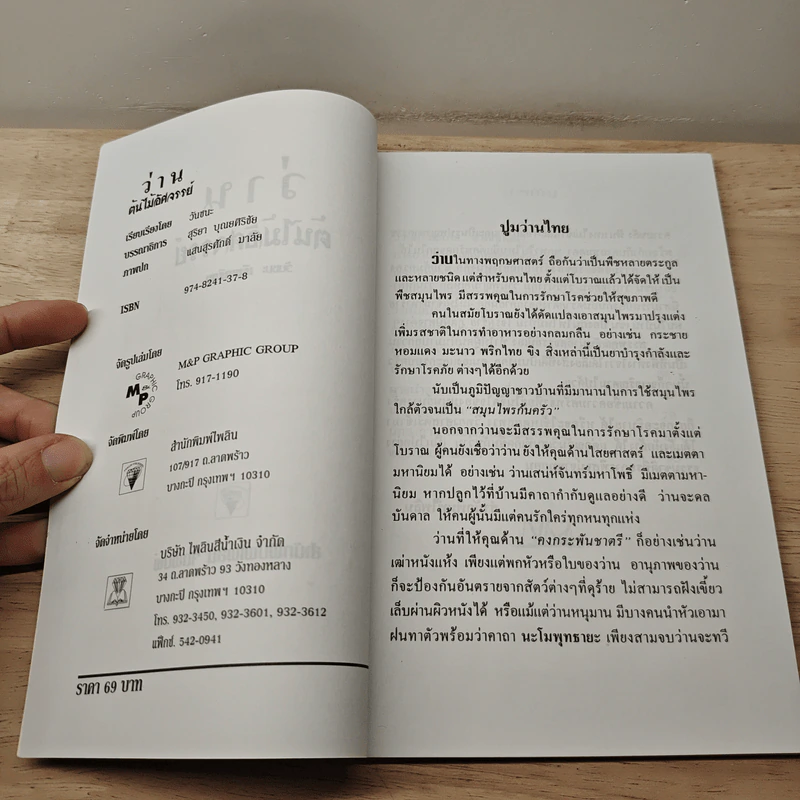 ว่าน
ต้นไม้อัศจรรย์
เรียบเรียงโดย วันชนะ
บรรณาธิการ สุริยา บุณยศิริชัย
ภาพปก แสนสุรศักดิ์ มาลัย
ISBN 974-8241-37-8
จัดรูปเล่มโดย M&P GRAPHIC GROUP
โทร. 917-1190
GRAPHIC
M&P
GROUP
จัดพิมพ์โดย สำนักพิมพ์ไพลิน
107/917 ถ.ลาดพร้าว
บางกะปิ กรุงเทพฯ 10310
จัดจำหน่ายโดย บริษัท ไพลินสีน้ำเงิน จำกัด
34 ถ.ลาดพร้าว 93 วังทองหลาง
บางกะปิ กรุงเทพฯ 10310
โทร. 932-3450, 932-3601, 932-3612
แฟ็กซ์. 542-0941
ราคา 69 บาท
ปูมว่านไทย
ว่านในทางพฤกษศาสตร์ ถือกันว่าเป็นพืชหลายตระกูล
และหลายชนิด แต่สำหรับคนไทย ตั้งแต่โบราณแล้วได้จัดให้เป็น
พืชสมุนไพร มีสรรพคุณในการรักษาโรคช่วยให้สุขภาพดี
คนในสมัยโบราณยังได้ดัดแปลงเอาสมุนไพรมาปรุงแต่ง
เพิ่มรสชาติในการทำอาหารอย่างกลมกลืน อย่างเช่น กระชาย
หอมแดง มะนาว พริกไทย ขิง สิ่งเหล่านี้เป็นยาบำรุงกำลังและ
รักษาโรคภัย ต่างๆได้อีกด้วย
นับเป็นภูมิปัญญาชาวบ้านที่มีมานานในการใช้สมุนไพร
ใกล้ตัวจนเป็น "สมุนไพรก้นครัว"
นอกจากว่านจะมีสรรพคุณในการรักษาโรคมาตั้งแต่
โบราณ ผู้คนยังเชื่อว่าว่าน ยังให้คุณด้านไสยศาสตร์ และเมตตา
มหานิยมได้ อย่างเช่น ว่านเสน่ห์จันทร์มหาโพธิ์ มีเมตตามหา-
นิยม หากปลูกไว้ที่บ้านมีคาถากำกับดูแลอย่างดี ว่านจะดล
บันดาล ให้คนผู้นั้นมีแต่คนรักใคร่ทุกหนทุกแห่ง
ว่านที่ให้คุณด้าน "คงกระพันชาตรี" ก็อย่างเช่นว่าน
เฒ่าหนังแห้ง เพียงแต่พกหัวหรือใบของว่าน อานุภาพของว่าน
ก็จะป้องกันอันตรายจากสัตว์ต่างๆที่ดุร้าย ไม่สามารถฝังเขี้ยว
เล็บผ่านผิวหนังได้ หรือแม้แต่ว่านหนุมาน มีบางคนนำหัวเอามา
ฝนทาตัวพร้อมว่าคาถา นะโมพุทธายะ เพียงสามจบว่านจะทวี